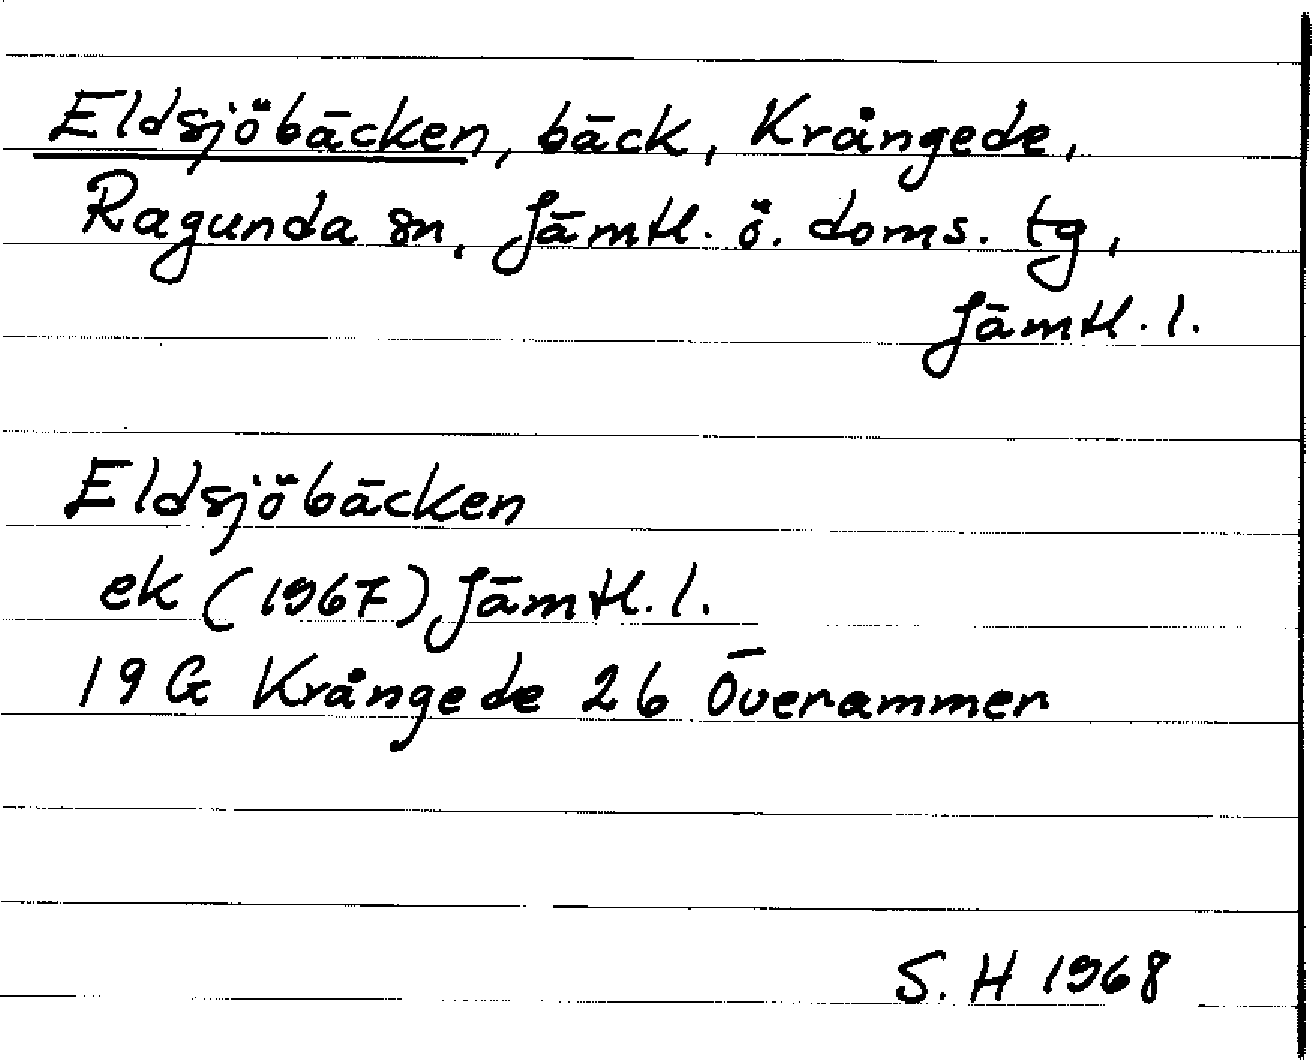 Eldsjöbäcken, bäck, Krångede,
Ragunda sn, Jämtl. ö. doms. tg,
Jämtl. l.
Eldsjöbäcken
ek (1967) Jämtl. l.
19 G Krångede 2b Överammer
S. H 1968